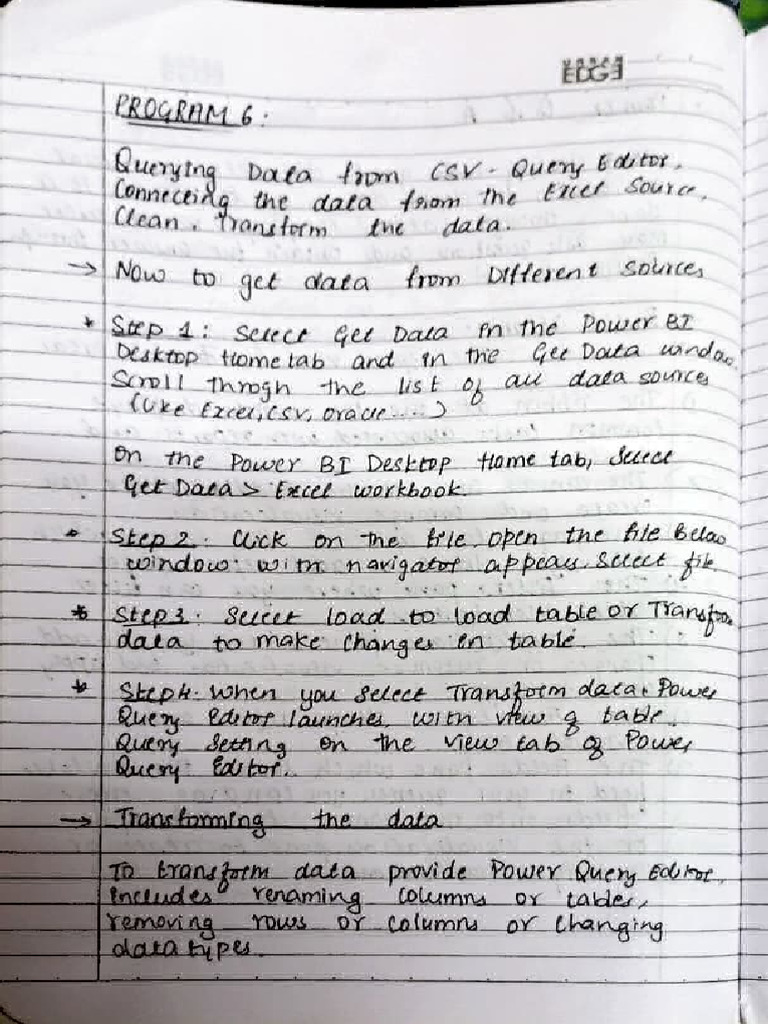 URBAN EDGE
PROGRAM 6:
Querying Data from CSV - Query Editor,
Connecting the data from the Excel Source,
Clean, Transform the data.
→ Now to get data from Different sources
* Step 1: Select Get Data in the Power BI
Desktop Home tab and in the Get Data window
Scroll throgh the list of all data sources
(Like Excel, CSV, Oracle....)
On the Power BI Desktop Home tab, Select
Get Data > Excel workbook.
* Step 2. Click on the file, open the file Below
window. with navigator appears, Select file.
* Step 3: Select load to load table or Transform
data to make changes in table.
* Step 4. When you select Transform data, Power
Query Editor launches with view of table.
Query Setting on the view tab of Power
Query Editor.
→ Transforming the data
To transform data provide Power Query Editor.
Includes renaming columns or tables,
removing rows or columns or changing
data types.